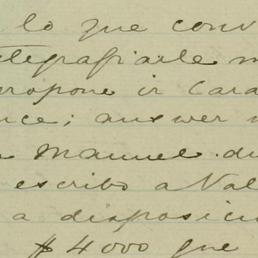 lo que conv
telegrafiarle m
ropone ir Cara
nce; answer
Manuel. di
escribo a Val
a disposici
$4000 que